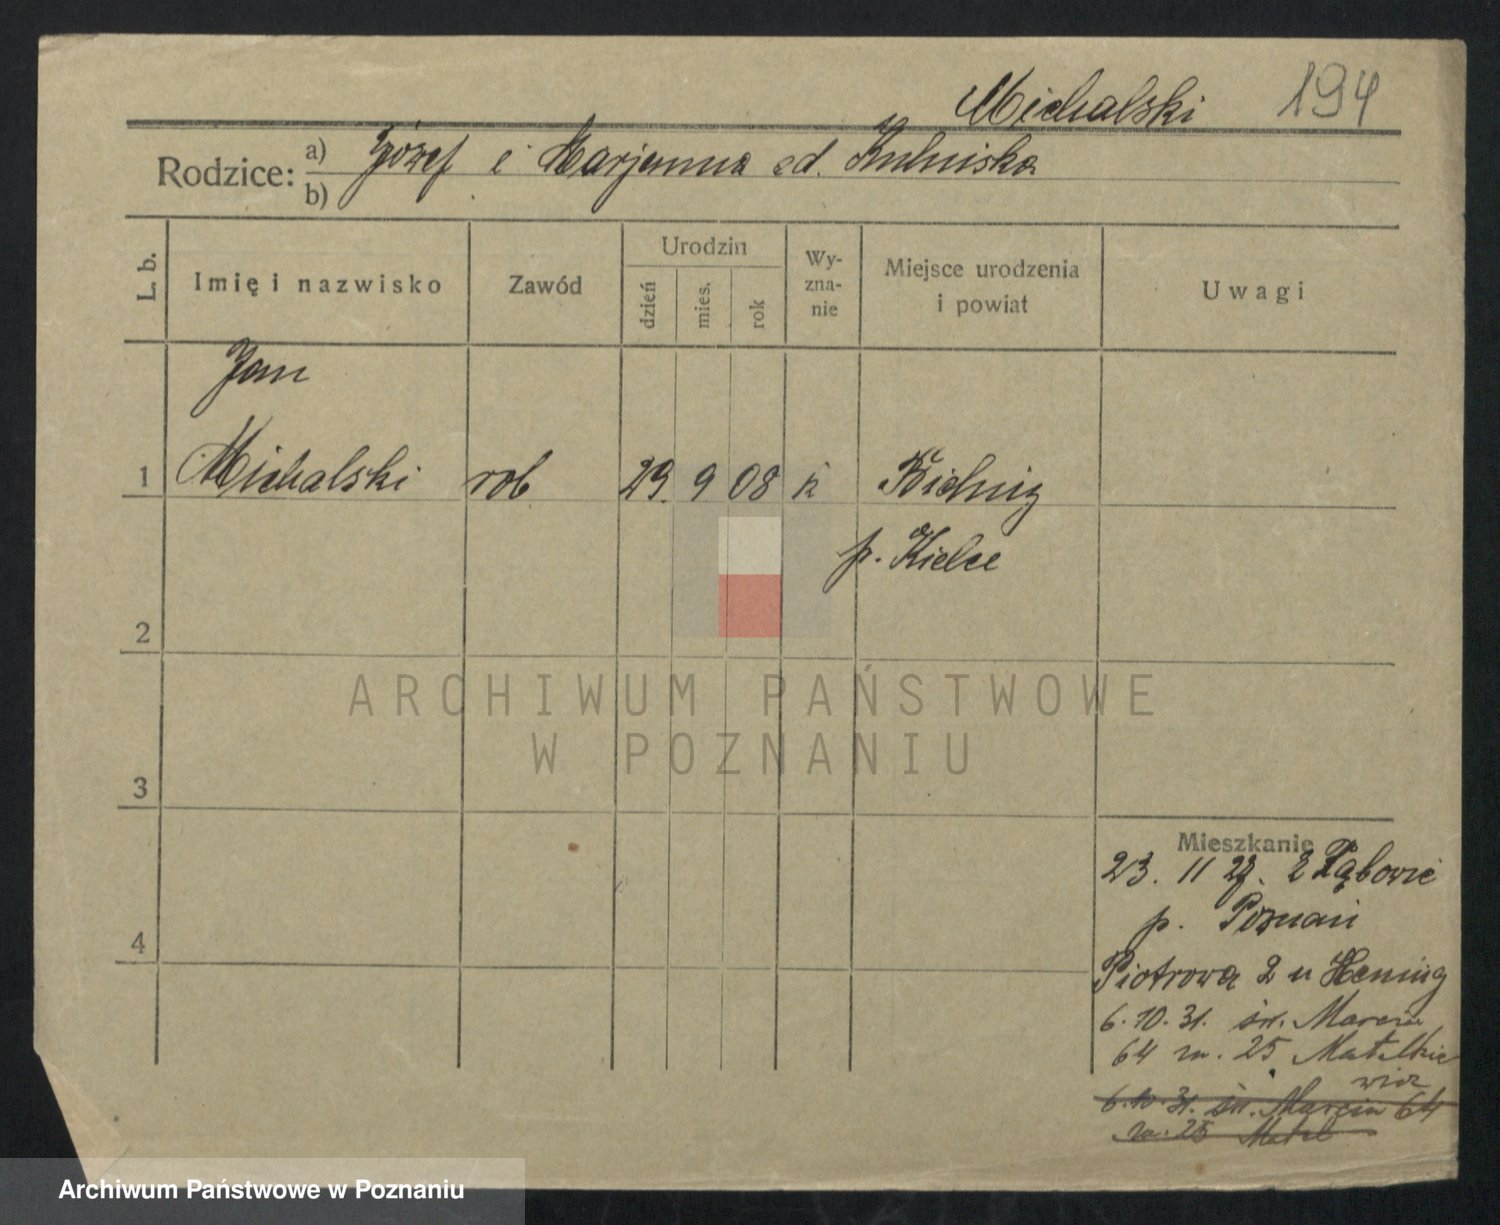 Michalski 194
Rodzice: a) Józef i Marjanna zd. Kulniska
b)
L. b. Imię i nazwisko Zawód Urodzin dzień mies. rok Wy-zna-nie Miejsce urodzenia i powiat Uwagi
Jan
1 Michalski rob 29. 9 08 k
p. Kielce
2
ARCHIWUM PAŃSTWOWE
W POZNANIU
3
Mieszkanie
23. 11 29. z
4 p. Poznań
Piotrowa 2 u Hening
6.10.31. św. Marcin
64 m. 25
6.10.31. św. Marcin 64
m. 25 Matel
Archiwum Państwowe w Poznaniu